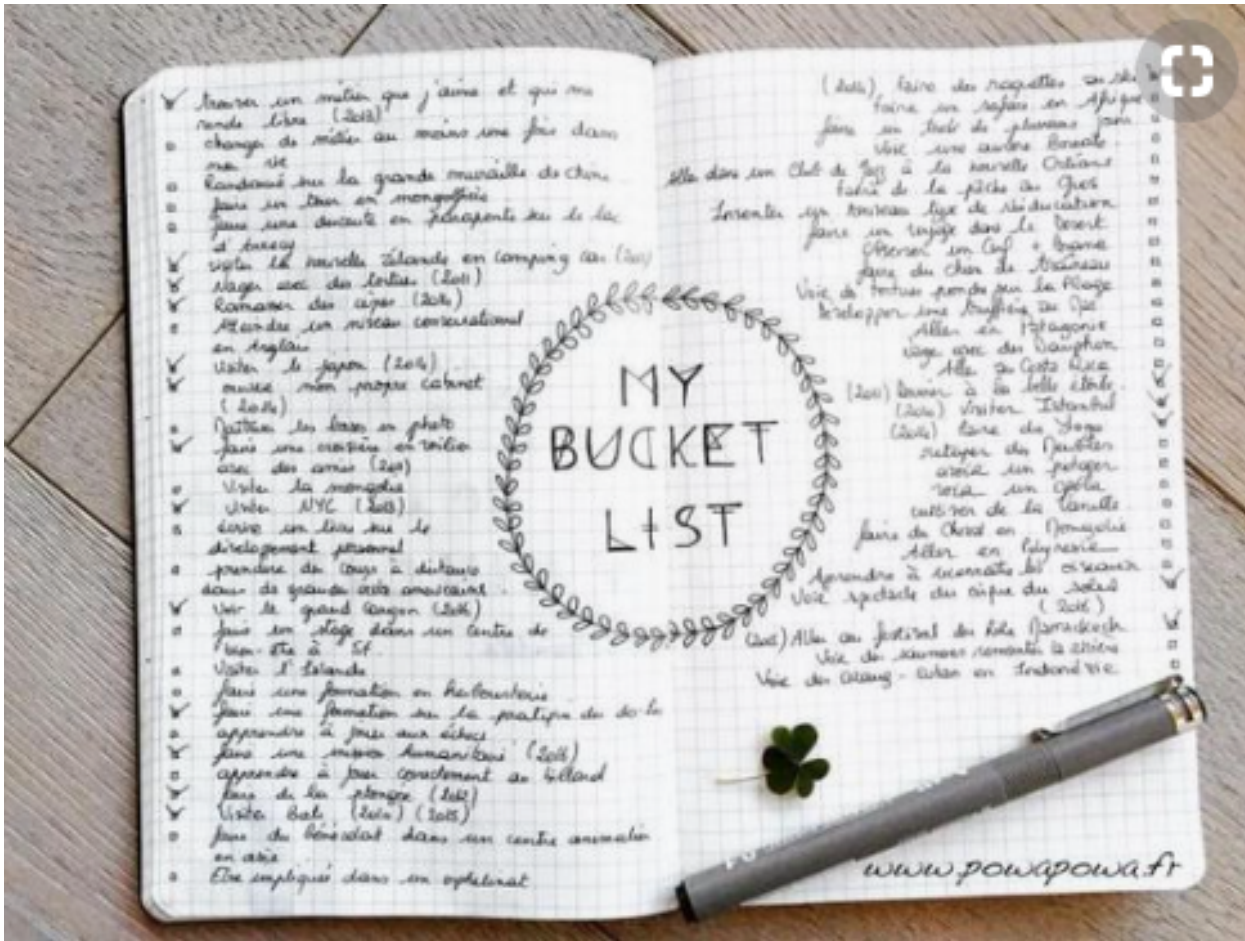 trouver un métier que j'aime et qui me
rende libre (2013)
changer de métier au moins une fois dans
ma vie
Randonné sur la grande muraille de chine
faire un tour en mongolfière
faire une descente en parapente sur le lac
d'Annecy
visiter la nouvelle Zélande en camping car
Nager avec des tortues (2011)
Ramasser des cèpes (2014)
Atteindre un niveau conversationnel
en Anglais
Visiter le japon (2014)
mon propre cabinet
(2014)
les bases en photo
faire une croisière en voilier
avec des amis
Visiter la mongolie
visiter NYC (2013)
écrire un livre sur le
développement personnel
prendre des cours à distance
dans de grande américaine
Voir le grand canyon (2016)
faire un stage dans un centre de
bien-être à SF.
Visiter l'Islande
faire une formation en herboristerie
faire une formation sur la pratique du do-in
apprendre à jouer aux échecs
faire une mission humanitaire (2016)
apprendre à jouer correctement au billard
faire de la plongée (2012)
Visiter Bali (2015)
faire du bénévolat dans un centre
en asie
Etre impliquée dans un orphelinat
MY
BUCKET
LIST
faire des raquettes
faire un safari en Afrique
faire un trek de plusieurs jours
Voir une aurore Boréale
dans un Club de Jazz à la nouvelle Orléans
faire de la pêche au Gros
Inventer un nouveau type de rééducation
faire un voyage dans le Desert
Observer un Cerf + Brame
faire du chien de traîneau
Voir des tortues pondre sur la Plage
Développer une
Aller en Patagonie
nage avec des Dauphin
Aller au Costa Rica
à la belle étoile
visiter Istambul
faire du Yoga
retaper des Meubles
avoir un potager
voir un
cultiver de la Vanille
faire du Cheval en Mongolie
Aller en Polynesie
Aprendre à reconnaître les oiseaux
Voir spectacle du cirque du soleil
(2016)
Aller au festival du Rire Marrackech
Voir des saumons remonter la rivière
Voir des Orang-Outan en Indonésie
www.powapowa.fr